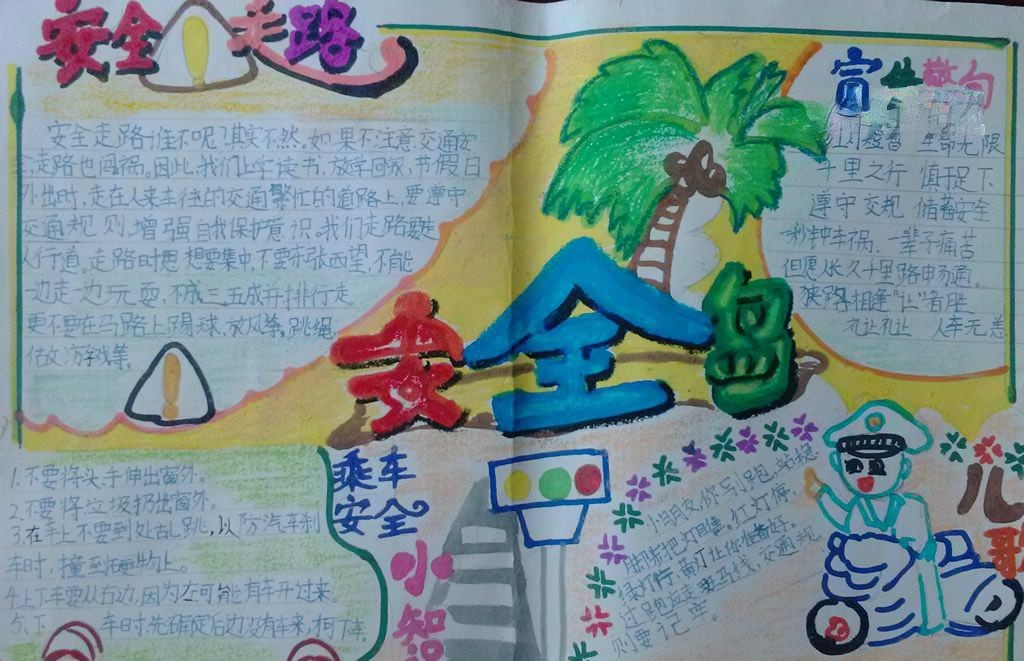 安全走路
安全走路谁不呢?其实不然。如果不注意交通安
全走路也闯祸。因此,我们上学读书,放学回家,节假日
外出时,走在人来车往的交通繁忙的道路上,要遵守
交通规则,增强自我保护意识。我们走路要走
人行道。走路时思想要集中,不要东张西望,不能
一边走一边玩耍,不成三五成并排行走。
更不要在马路上踢球、放风筝、跳绳,
做游戏等。
宣 警句
生命无限
千里之行 慎于足下
遵守交规 储蓄安全
一秒钟车祸、一辈子痛苦
但愿人长久十里路申易通。
狭路相逢"让"者胜
礼让礼让 人车无恙
安全岛
1.不要将头手伸出窗外。
2.不要将垃圾扔出窗外。
3.在车上不要到处乱跳,以防汽车刹
车时,撞到硬物上。
4.上下车要从右边,因为左可能有车开过来。
5.下 车时,先确定后边没有车来,
乘车
安全
小
知
小朋友,你写小跑,站稳
脚步把灯看。红灯停,
绿灯行,黄灯让你准备好。
过路应走斑马线,交通规
则要记牢。
儿
歌